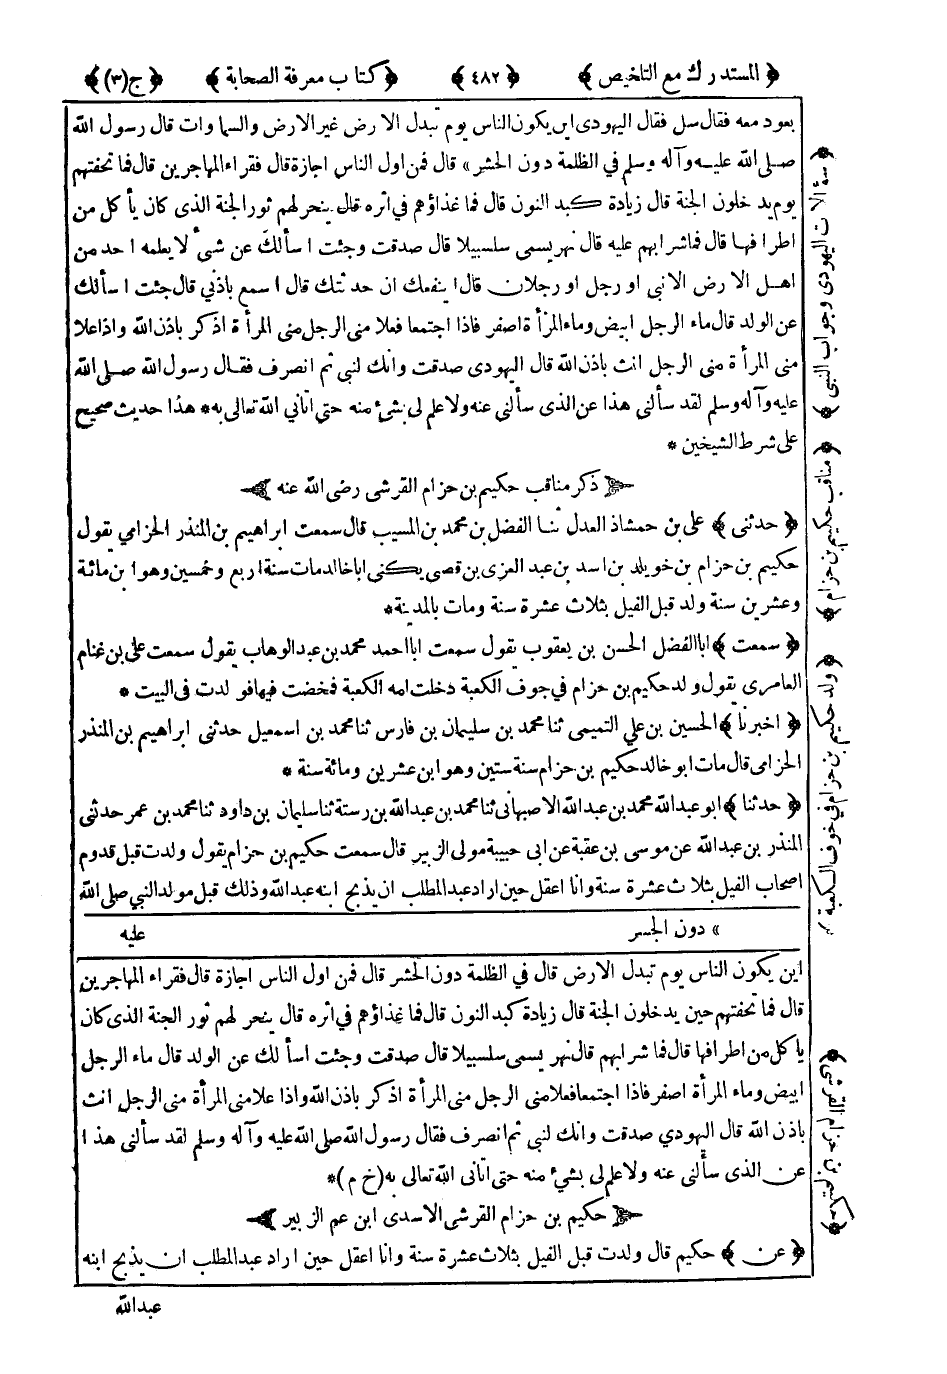 ﴿ المستدرك مع التلخيص ﴾ ﴿ ٤٨٢ ﴾ ﴿ كتاب معرفة الصحابة ﴾ ﴿ ج(٣) ﴾
يعود معه فقال سل فقال اليهودى اين يكون الناس يوم تبدل الارض غير الارض والسماوات قال رسول الله
صلى الله عليه وآله وسلم في الظلمة دون الحشر » قال فمن اول الناس اجازة قال فقراء المهاجرين قال فما تحفتهم
يوم يدخلون الجنة قال زيادة كبد النون قال فما غذاؤهم في اثره قال ينحر لهم ثور الجنة الذى كان يأكل من
اطرافها قال فما شرابهم عليه قال نهر يسمى سلسبيلا قال صدقت وجئت اسألك عن شئ لا يعلمه احد من
اهل الارض الا نبى او رجل او رجلان قال اينفعك ان حدثتك قال اسمع باذني قال جئت اسألك
عن الولد قال ماء الرجل ابيض وماء المرأة اصفر فاذا اجتمعا فعلا منى الرجل منى المرأة اذكر باذن الله واذا علا
منى المرأة منى الرجل انث باذن الله قال اليهودى صدقت وانك لنبي ثم انصرف فقال رسول الله صلى الله
عليه وآله وسلم لقد سألنى هذا عن الذى سألنى عنه ولا علم لى بشئ منه حتى اتانى الله تعالى به * هذا حديث صحيح
على شرط الشيخين *
ذكر مناقب حكيم بن حزام القرشى رضى الله عنه
﴿ حدثنى ﴾ على بن حمشاذ العدل ثنا الفضل بن محمد بن المسيب قال سمعت ابراهيم بن المنذر الحزامي يقول
حكيم بن حزام بن خويلد بن اسد بن عبد العزى بن قصى يكنى ابا خالد مات سنة اربع وخمسين وهو ابن مائة
وعشرين سنة ولد قبل الفيل بثلاث عشرة سنة ومات بالمدينة *
﴿ سمعت ﴾ ابا الفضل الحسن بن يعقوب يقول سمعت ابا احمد محمد بن عبد الوهاب يقول سمعت على بن غنام
العامرى يقول ولد حكيم بن حزام في جوف الكعبة دخلت امه الكعبة فمخضت فيها فولدت فى البيت *
﴿ اخبرنا ﴾ الحسين بن علي التميمى ثنا محمد بن سليمان بن فارس ثنا محمد بن اسمعيل حدثنى ابراهيم بن المنذر
الحزامى قال مات ابو خالد حكيم بن حزام سنة ستين وهو ابن عشرين ومائة سنة *
﴿ حدثنا ﴾ ابو عبد الله محمد بن عبد الله الاصبهانى ثنا محمد بن عبد الله بن رستة ثنا سليمان بن داود ثنا محمد بن عمر حدثنى
المنذر بن عبد الله عن موسى بن عقبة عن ابى حبيبة مولى الزبير قال سمعت حكيم بن حزام يقول ولدت قبل قدوم
اصحاب الفيل بثلاث عشرة سنة وانا اعقل حين اراد عبد المطلب ان يذبح ابنه عبد الله وذلك قبل مولد النبي صلى الله
» دون الجسر
عليه
اين يكون الناس يوم تبدل الارض قال في الظلمة دون الحشر قال فمن اول الناس اجازة قال فقراء المهاجرين
قال فما تحفتهم حين يدخلون الجنة قال زيادة كبد النون قال فما غذاؤهم في اثره قال ينحر لهم ثور الجنة الذى كان
يأكل من اطرافها قال فما شرابهم قال نهر يسمى سلسبيلا قال صدقت وجئت اسألك عن الولد قال ماء الرجل
ابيض وماء المرأة اصفر فاذا اجتمعا فعلا منى الرجل منى المرأة اذكر باذن الله واذا علا منى المرأة منى الرجل انث
باذن الله قال اليهودي صدقت وانك لنبي ثم انصرف فقال رسول الله صلى الله عليه وآله وسلم لقد سألنى هذا
عن الذى سألنى عنه ولا علم لى بشئ منه حتى اتانى الله تعالى به (خ م) *
حكيم بن حزام القرشى الاسدى ابن عم الزبير
﴿ عن ﴾ حكيم قال ولدت قبل الفيل بثلاث عشرة سنة وانا اعقل حين اراد عبد المطلب ان يذبح ابنه
عبد الله
﴿ سؤالات اليهودى وجواب النبي ﴾
﴿ مناقب حكيم بن حزام ﴾
﴿ ولد حكيم بن حزام فى خوف الكعبة
﴿ حكيم بن حزام القرشى ﴾